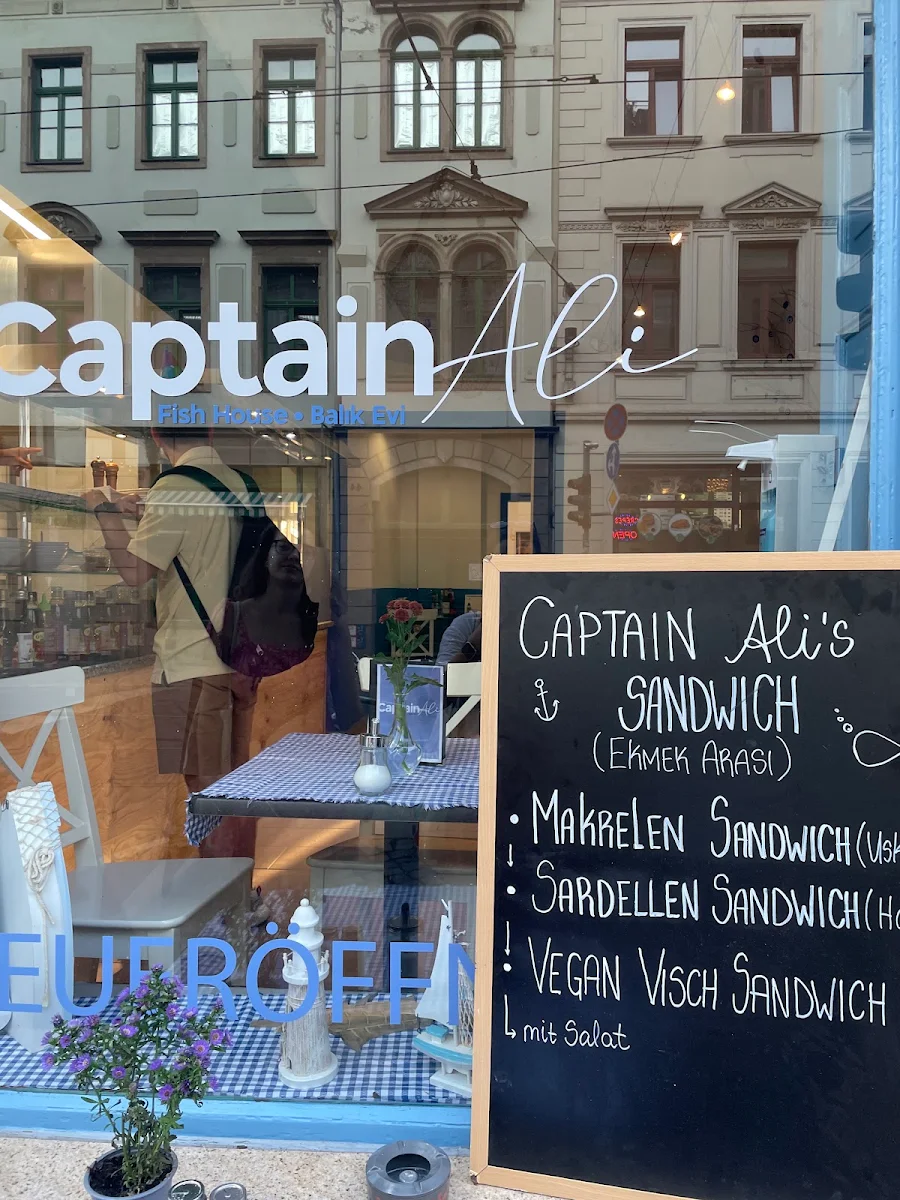 Captain Ali
Fish House • Balık Evi
CaptainAli
EUERÖFFN
CAPTAIN Ali's
SANDWICH
(EKMEK ARASI)
• MAKRELEN SANDWICH (Usk
• SARDELLEN SANDWICH (Ha
• VEGAN VISCH SANDWICH
mit Salat